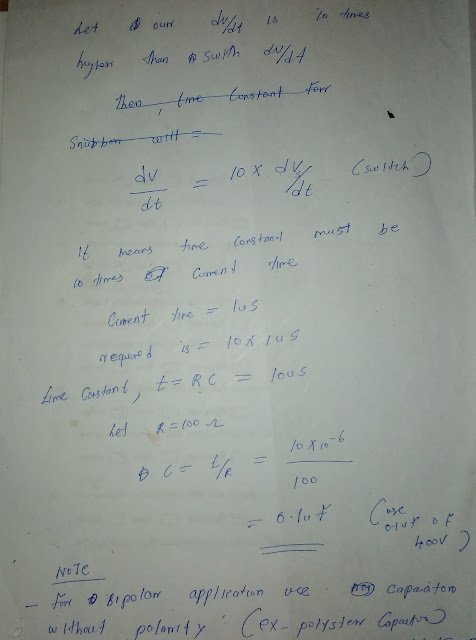 Let our dv/dt is 10 times
higher than swith dv/dt
Then, time Constant For
Snubber will =
dv/dt = 10 x dv/dt (switch)
It means time constant must be
10 times of Current time
Current time = 1us
required is = 10 x 1us
time Constant, t = RC = 10us
Let R = 100 Ω
C = t/R = 10 x 10-6 / 100
= 0.1uf (use 0.1uf of 400V)
NOTE
- For Bipolar application use capacitors
without polarity (ex- polyster Capacitor)